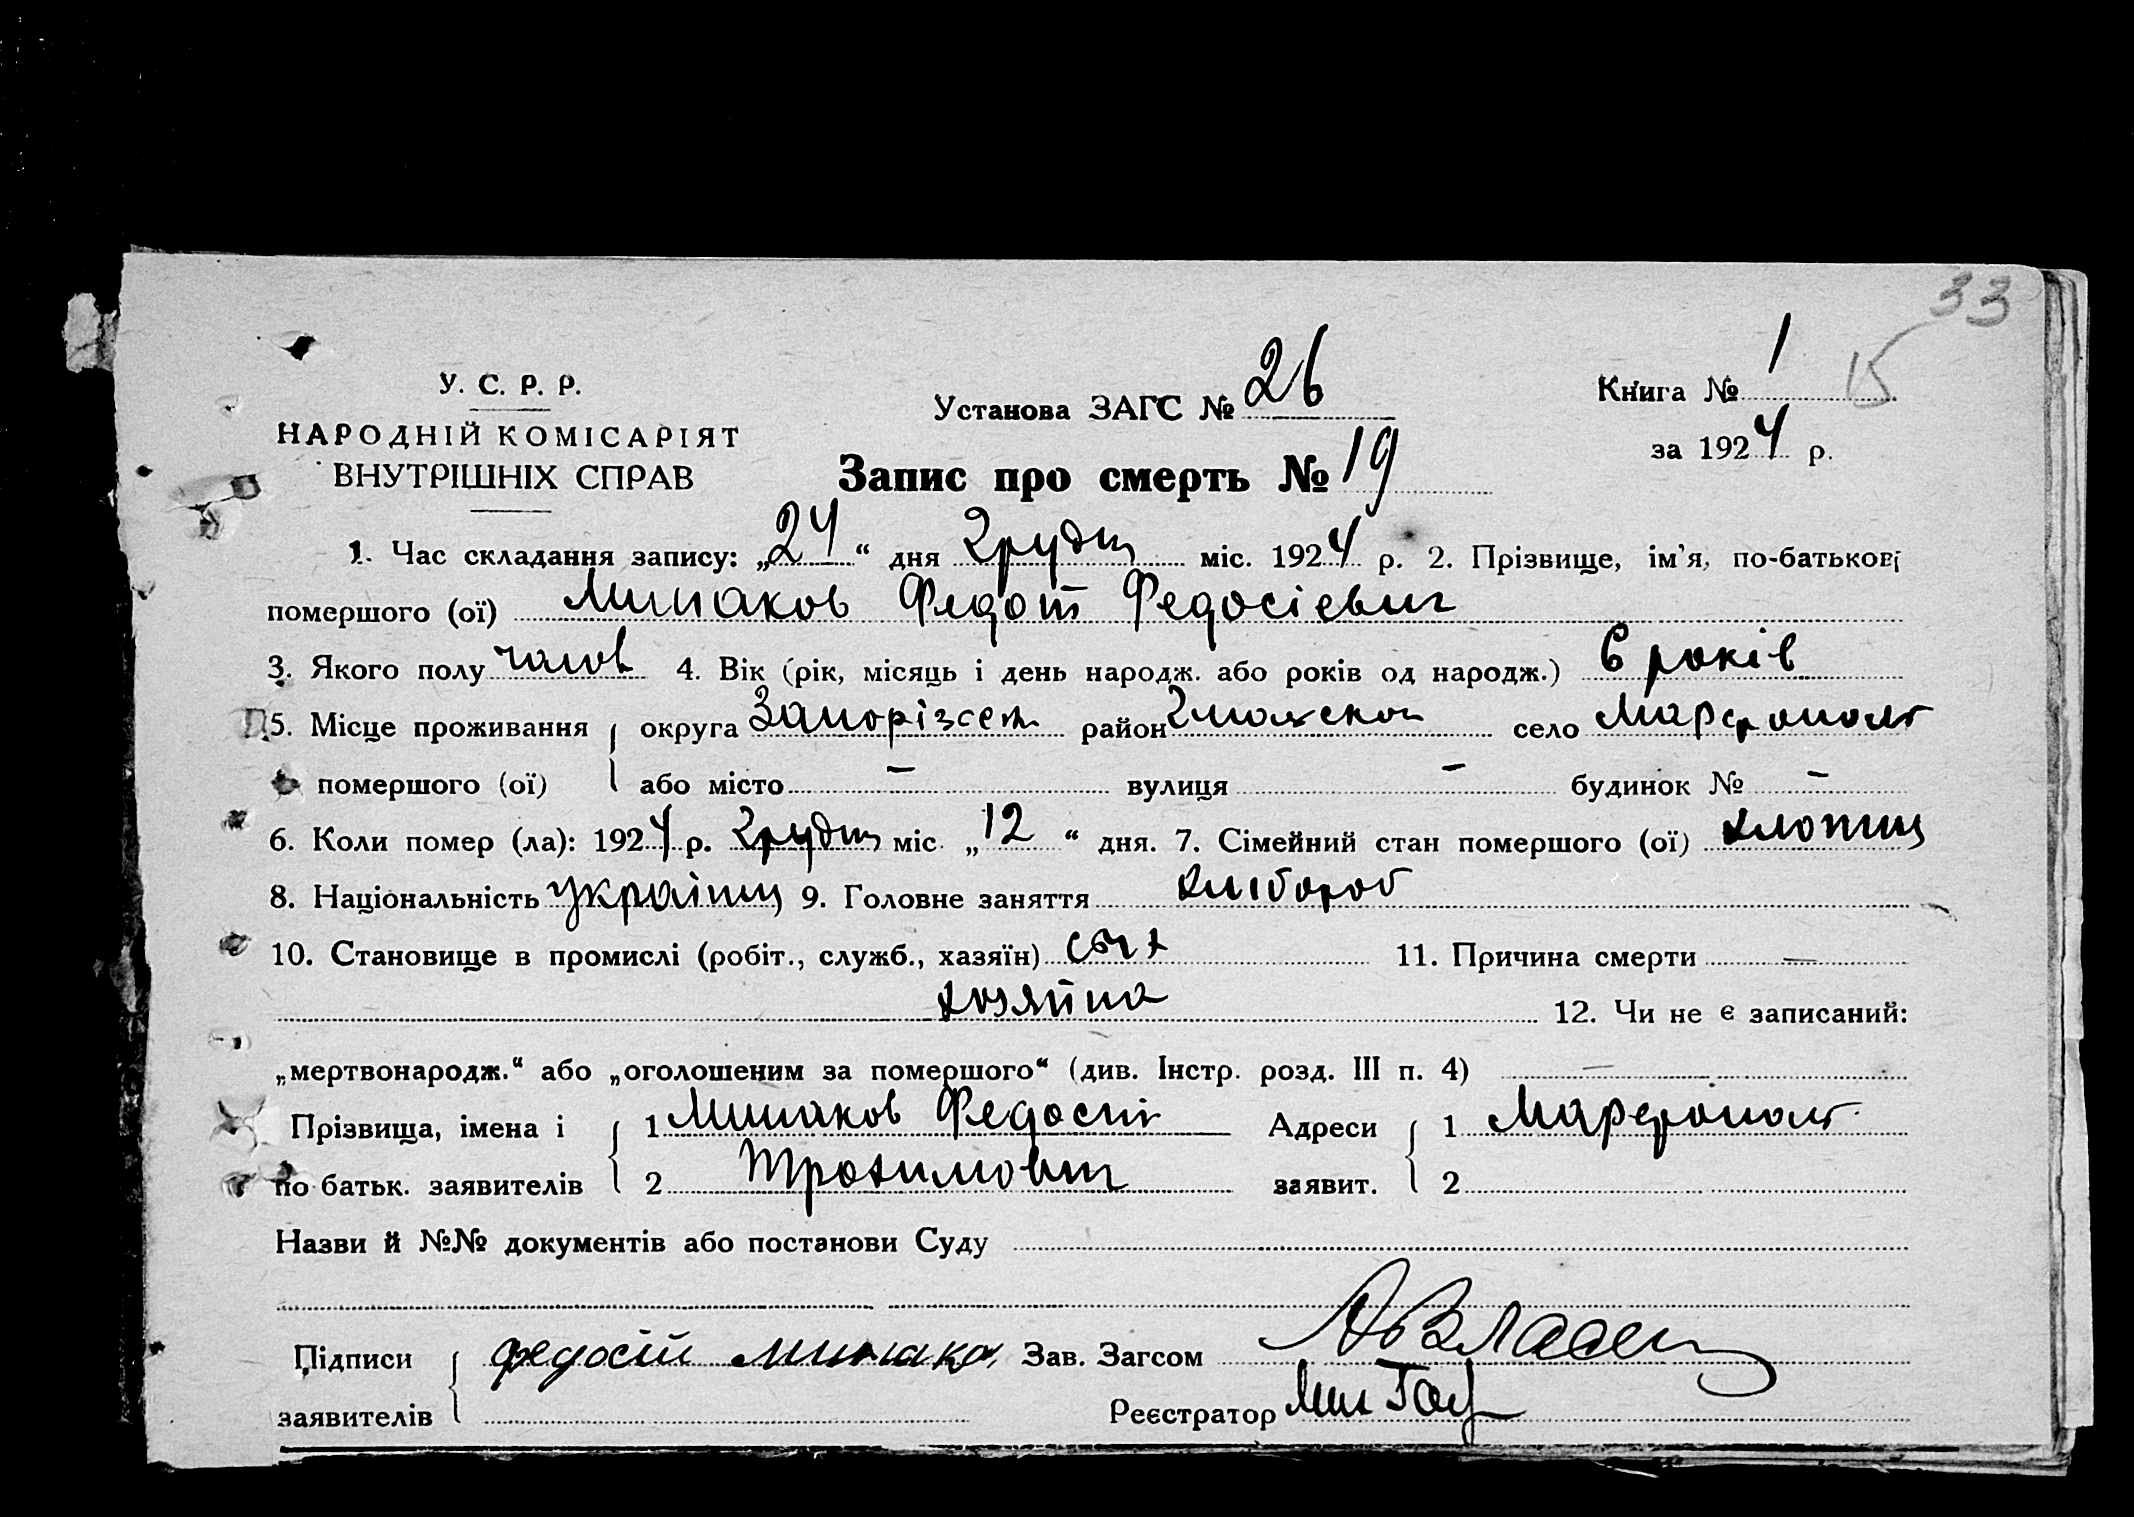 33
У. С. Р. Р.
НАРОДНІЙ КОМІСАРІЯТ
ВНУТРІШНІХ СПРАВ
Установа ЗАГС № 26
Книга № 1 15
за 1924 р.
Запис про смерть № 19
1. Час складання запису: „24“ дня Грудня міс. 1924 р. 2. Прізвище, ім’я, по-батькові
помершого (ої) Минаков Федот Федосієвич
3. Якого полу чолов 4. Вік (рік, місяць і день народж. або років од народж.) 6 років
5. Місце проживання округа Запорізськ район село Марфополь
помершого (ої) або місто – вулиця – будинок № –
6. Коли помер (ла): 1924 р. Грудня міс. „12“ дня. 7. Сімейний стан помершого (ої) хлопець
8. Національність українц 9. Головне заняття хлібороб
10. Становище в промислі (робіт., служб., хазяїн) син 11. Причина смерти —
хозяйна 12. Чи не є записаний:
„мертвонародж.“ або „оголошеним за помершого“ (див. Інстр. розд. III п. 4) —
Прізвища, імена і 1 Минаков Федосій Адреси 1 Марфополь
по батьк. заявителів 2 Трохимович заявит. 2
Назви й №№ документів або постанови Суду
Підписи федосій минако Зав. Загсом
заявителів Реєстратор